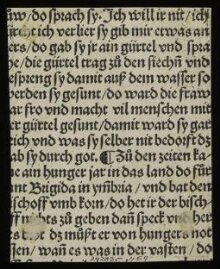 aw / do sprach sy. Ich will ir nit / ich
ich verlier sy gib mir etwas an
ers / do gab sy jr ain gürtel vnd spra
he / die gürtel trag zů den siechn̄ vnd
espreng sy damit auß dem wasser so
werden sy gesunt / do ward die fraw
ar fro vnd macht vil menschen mit
er gürtel gesunt / damit ward sy gar
eich vnd was sy selber nit bedorft dz
ab sy durch got. ¶ Zů den zeiten ka-
ain hunger jar in das land do für
ant Brigida in ymbria / vnd bat den
ischoff vmb korn / do het ir der bisch-
ff nichts zů geben dañ speck vo
dz můst er von hungers not
sen / wañ es was in der vasten / do